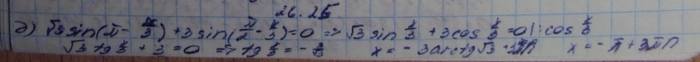 26.25
д) √3 sin(π - x/3) + 3 sin(π/2 - x/3) = 0 => √3 sin x/3 + 3 cos x/3 = 0 | : cos x/3
√3 tg x/3 + 3 = 0 => tg x/3 = - x = -3arctg√3 x = -π + 3πn